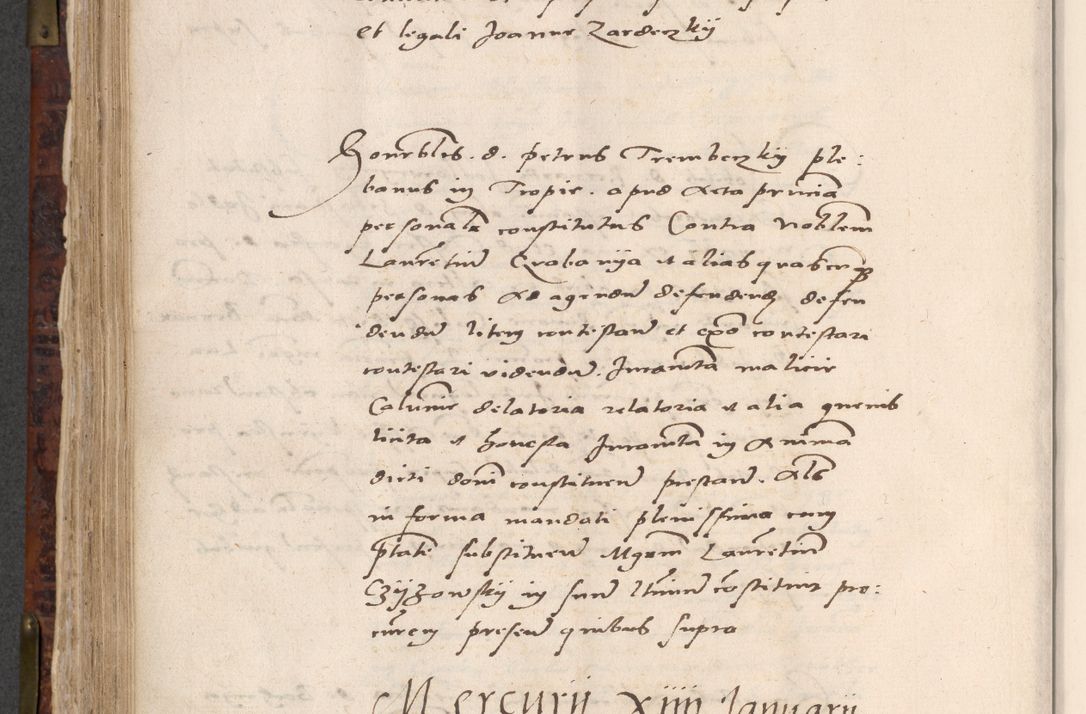 et legali Joanne Zardeczkÿ
Honrblis . d . petrus Trembeczkÿ ple:
banus in Tropie . apud Acta prncia
personalr constitutus Contra Noblem
Laurentiu Qrabanya et alias quascunq
personas Ad agendu defendendu defen
dendu litem contestanu et expo contestari
contestari videndu . Juramta malicie
Calunie delatoria relatoria et alia quevis
licita et honesta Juramta in Animam
dicti domi constituen prestanu . Als
in forma mandati plenissima cum
ptate substituen Mgrm Laurentiu
Czÿzowskÿ in suu ltimu constituit pro:
curem presen quibus supra
Mercurij xiiij Januarij